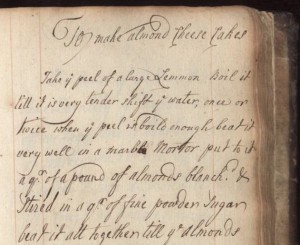 To make almond Cheese Cakes
Take yͤ peel of a large Lemmon Boil it
till it is very tender shift yͤ water, once or
twice when yͤ peel is boild enough beat it
very well in a marble Mortor put to it
a qr. of a pound of almonds blanch.d &
Stired in a qr. of fine powder Sugar
beat it all together till yͤ almonds